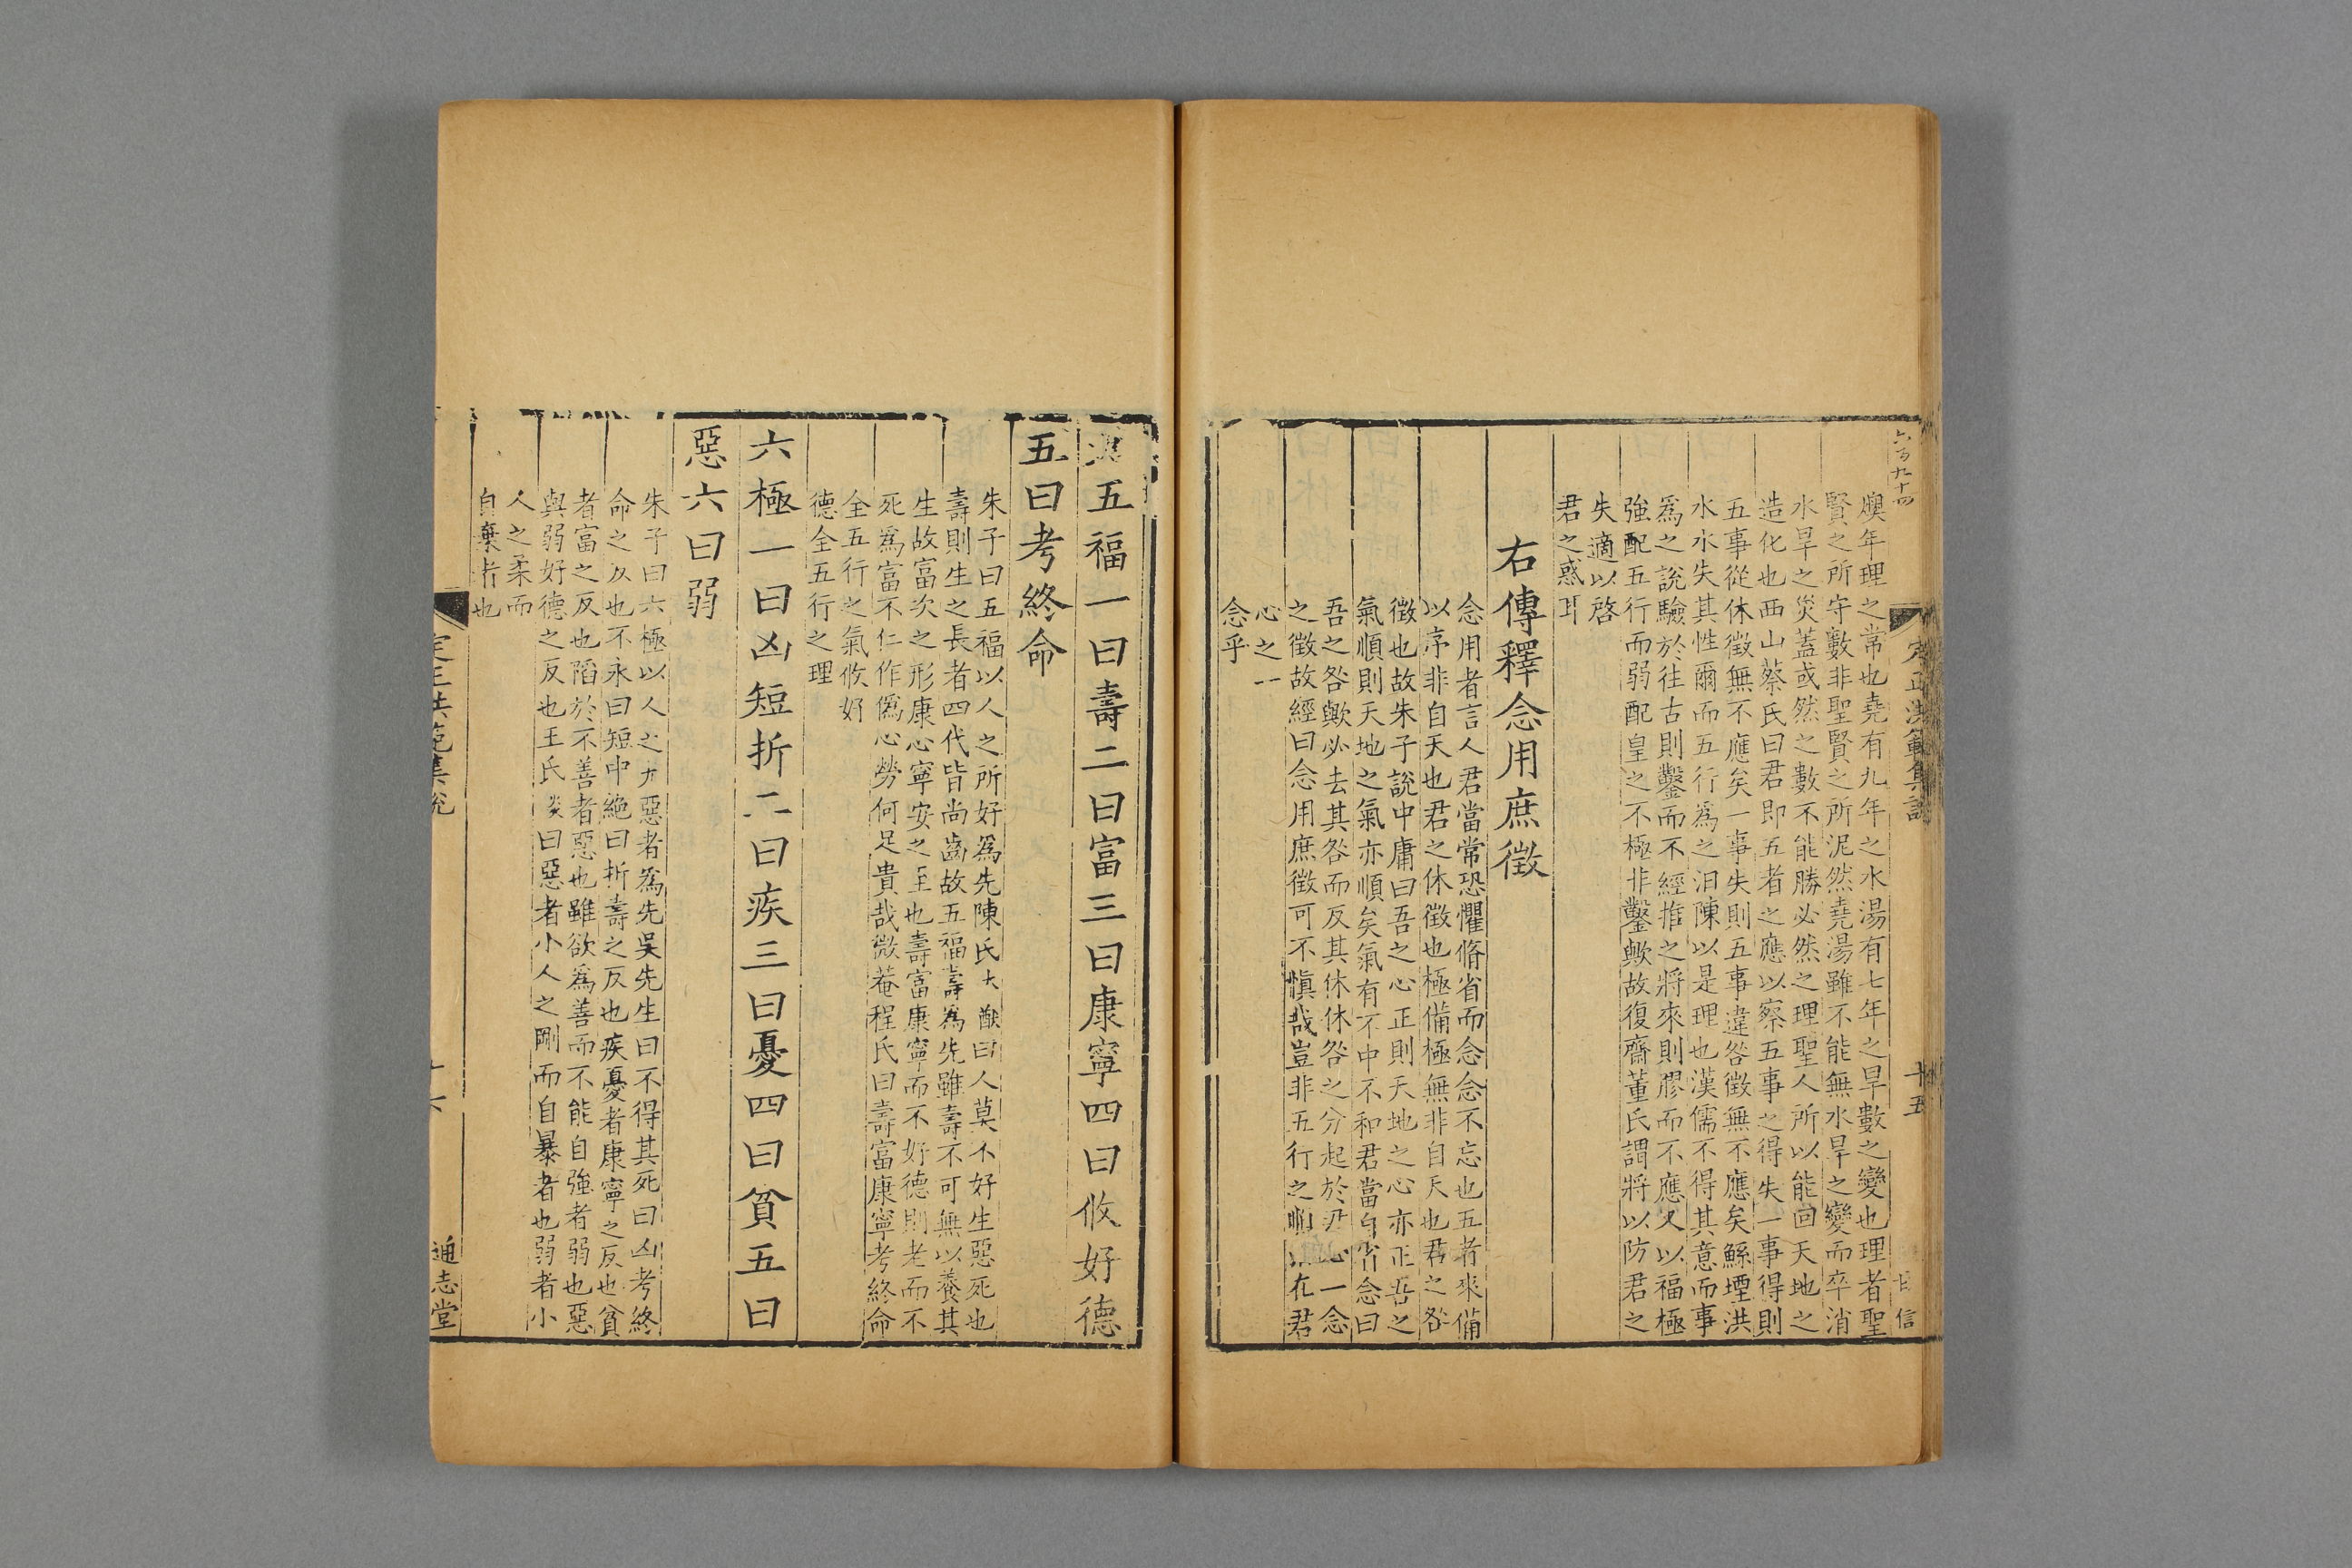 六百九十四
定正洪範集說
十五
甘信
燠年理之常也堯有九年之水湯有七年之旱數之變也理者聖
賢之所守數非聖賢之所泥然堯湯雖不能無水旱之變而卒消
水旱之災蓋或然之數不能勝必然之理聖人所以能回天地之
造化也西山蔡氏曰君即五者之應以察五事之得失一事得則
五事從休徵無不應矣一事失則五事違咎徵無不應矣鯀堙洪
水水失其性爾而五行為之汨陳以是理也漢儒不得其意而事
為之說驗於往古則鑿而不經推之將來則膠而不應又以福極
強配五行而弱配皇之不極非鑿歟故復齋董氏謂將以防君之
失適以啓
君之惑耳
右傳釋念用庶徵
念用者言人君當常恐懼脩省而念念不忘也五者來備
以序非自天也君之休徵也極備極無非自天也君之咎
徵也故朱子說中庸曰吾之心正則天地之心亦正吾之
氣順則天地之氣亦順矣氣有不中不和君當自省念曰
吾之咎歟必去其咎而反其休休咎之分起於君心一念
之徵故經曰念用庶徵可不愼哉豈非五行之順以在君
心之一
念乎
五福一曰壽二曰富三曰康寧四曰攸好德
五曰考終命
朱子曰五福以人之所好為先陳氏大猷曰人莫不好生惡死也
壽則生之長者四代皆尚齒故五福壽為先雖壽不可無以養其
生故富次之形康心寧安之至也壽富康寧而不好德則老而不
死為富不仁作僞心勞何足貴哉徽菴程氏曰壽富康寧考終命
全五行之氣攸好
德全五行之理
六極一曰凶短折二曰疾三曰憂四曰貧五曰
惡六曰弱
朱子曰六極以人之尤惡者為先吳先生曰不得其死曰凶考終
命之反也不永曰短中絶曰折壽之反也疾憂者康寧之反也貧
者富之反也陷於不善者惡也雖欲為善而不能自強者弱也惡
與弱好德之反也王氏炎曰惡者小人之剛而自暴者也弱者小
人之柔而
自棄者也
定正洪範集說
十六
通志堂